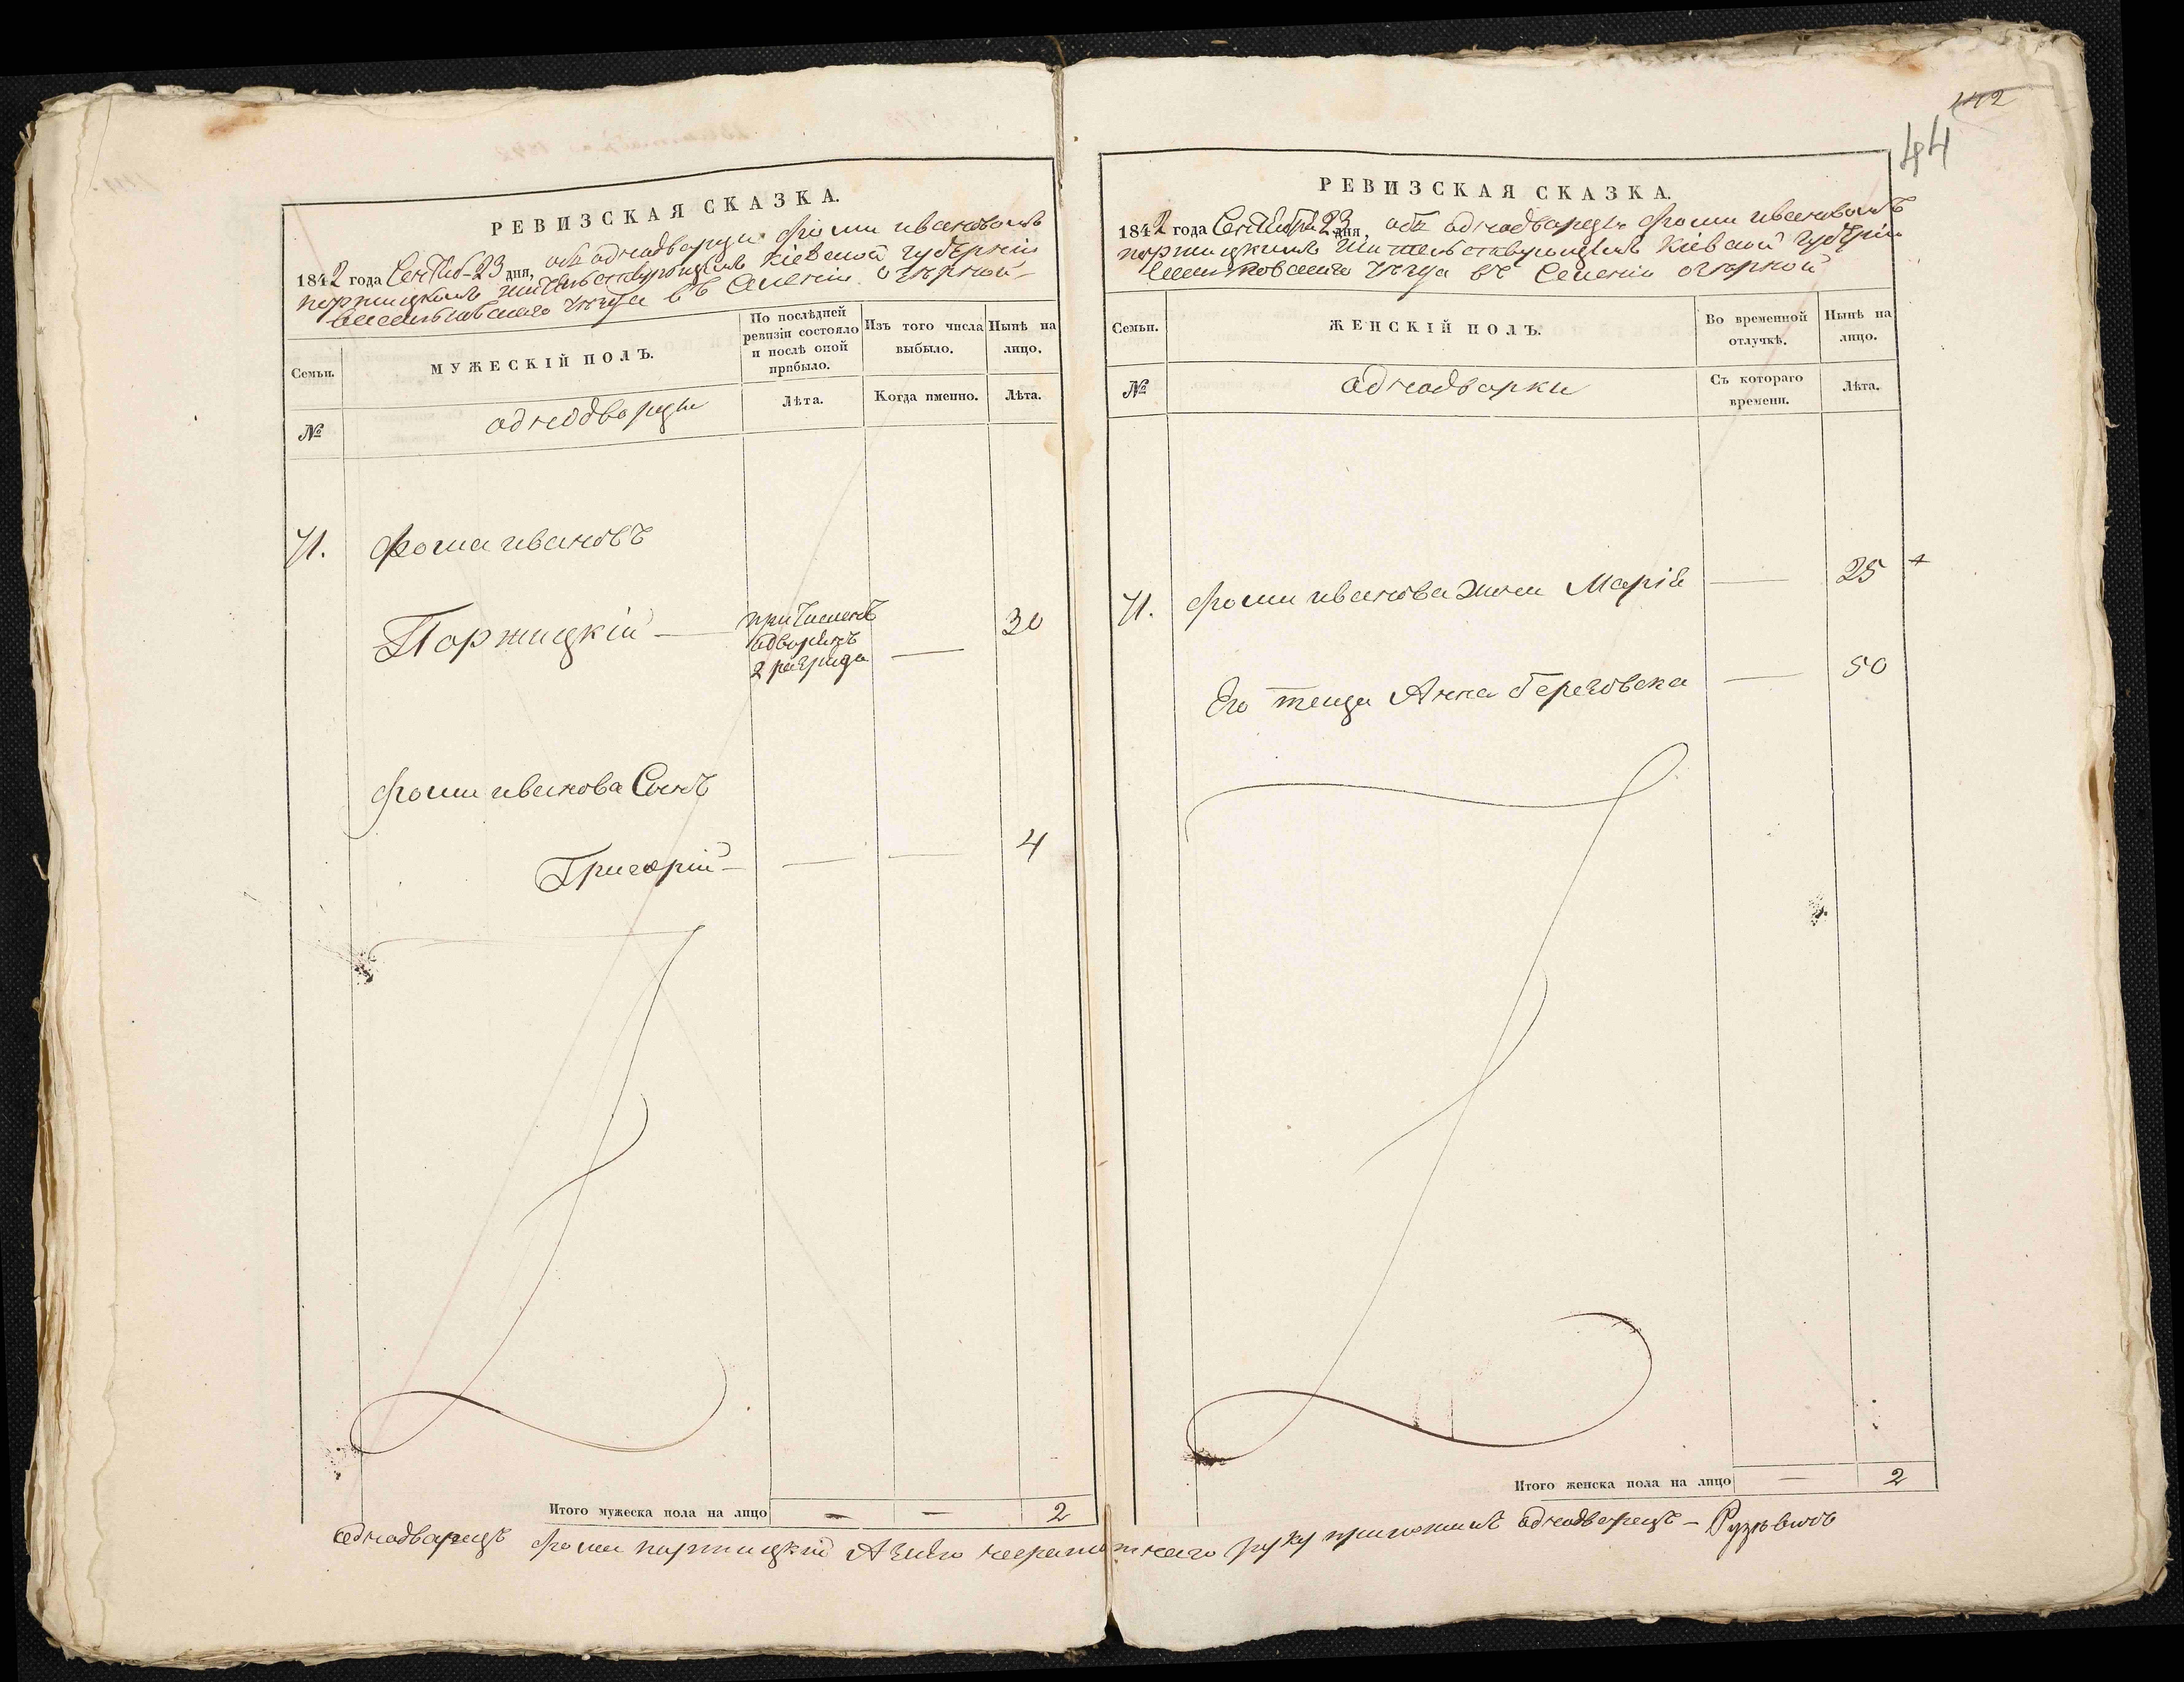 РЕВИЗСКАЯ СКАЗКА.
1842 года Сентяб-23 дня, объ однодворци фоми ивановомъ
поржицкомъ жительствующемъ Кіевской губерніи
Васильковскаго уезда въ Селеніи озерной
Семьи.
МУЖЕСКІЙ ПОЛЪ.
По послѣдней
ревизіи состояло
и послѣ оной
прибыло.
Изъ того числа
выбыло.
Нынѣ на
лицо.
№
однодворцы
Лѣта.
Когда именно.
Лѣта.
фома ивановъ
Поржицкій
причисленъ
2 разрида
30
фоми иванова Сынъ
Григорій
4
Итого мужеска пола на лицо
2
142
44
РЕВИЗСКАЯ СКАЗКА.
1842 года Сентебря 23 дня, объ однодварци фоми ивановомъ
поржицкимъ жительствующимъ Кіевской губерніи
Васильковскаго уезда въ Селеніи озерной
Семьи.
ЖЕНСКІЙ ПОЛЪ.
Во временной
отлучкѣ.
Нынѣ на
лицо.
№
однодворки
Съ котораго
времени.
Лѣта.
фоми иванова жена Марія
25
Его теща Анна береговска
50
Итого женска пола на лицо
2
однодварецъ фома поржицкій А заего неграмотнаго руку приложилъ однодворецъ -